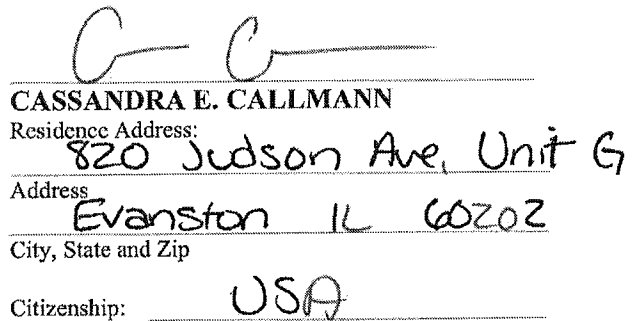 CASSANDRA E. CALLMANN
Residence Address:
820 Judson Ave, Unit G
Address
Evanston IL 60202
City, State and Zip
Citizenship: USA